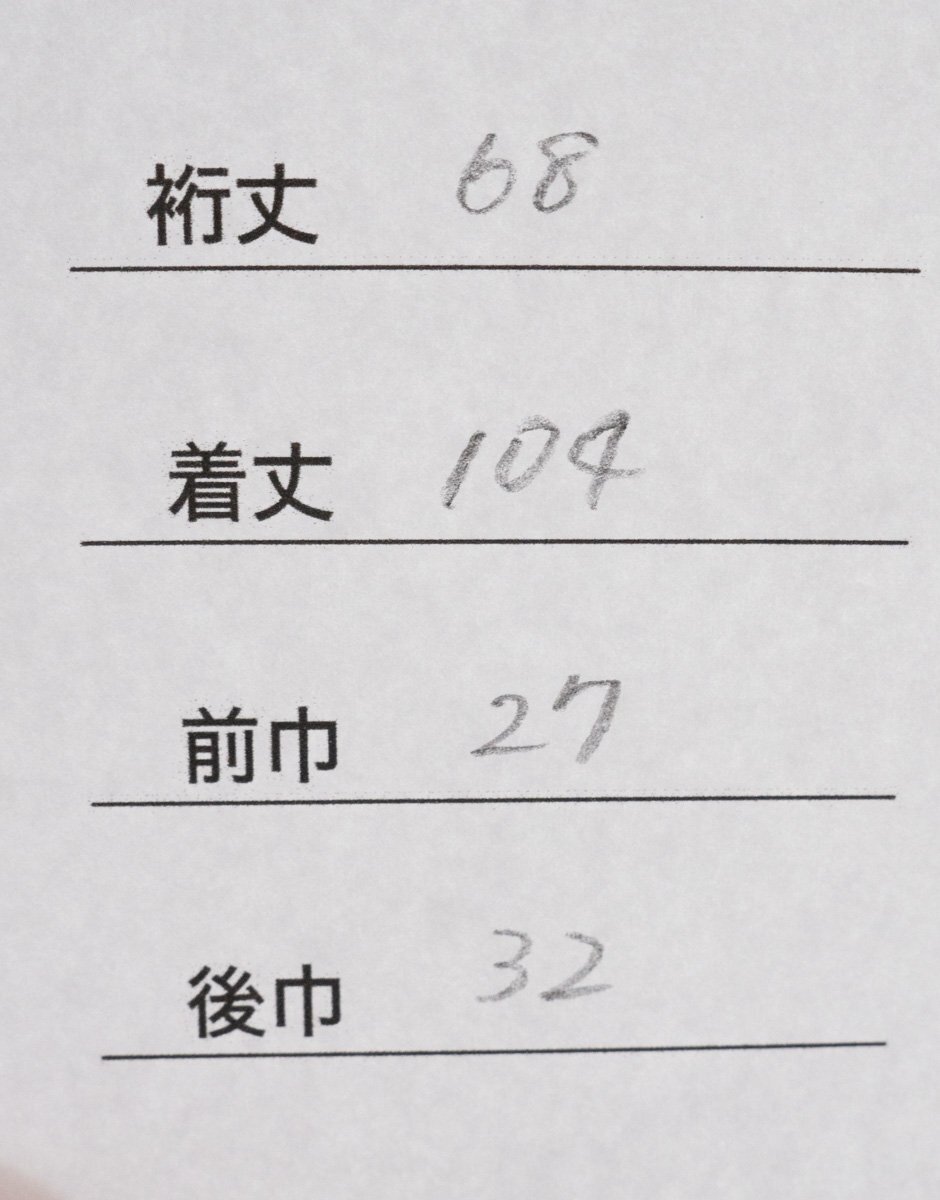 裄丈 68
着丈 104
前巾 27
後巾 32